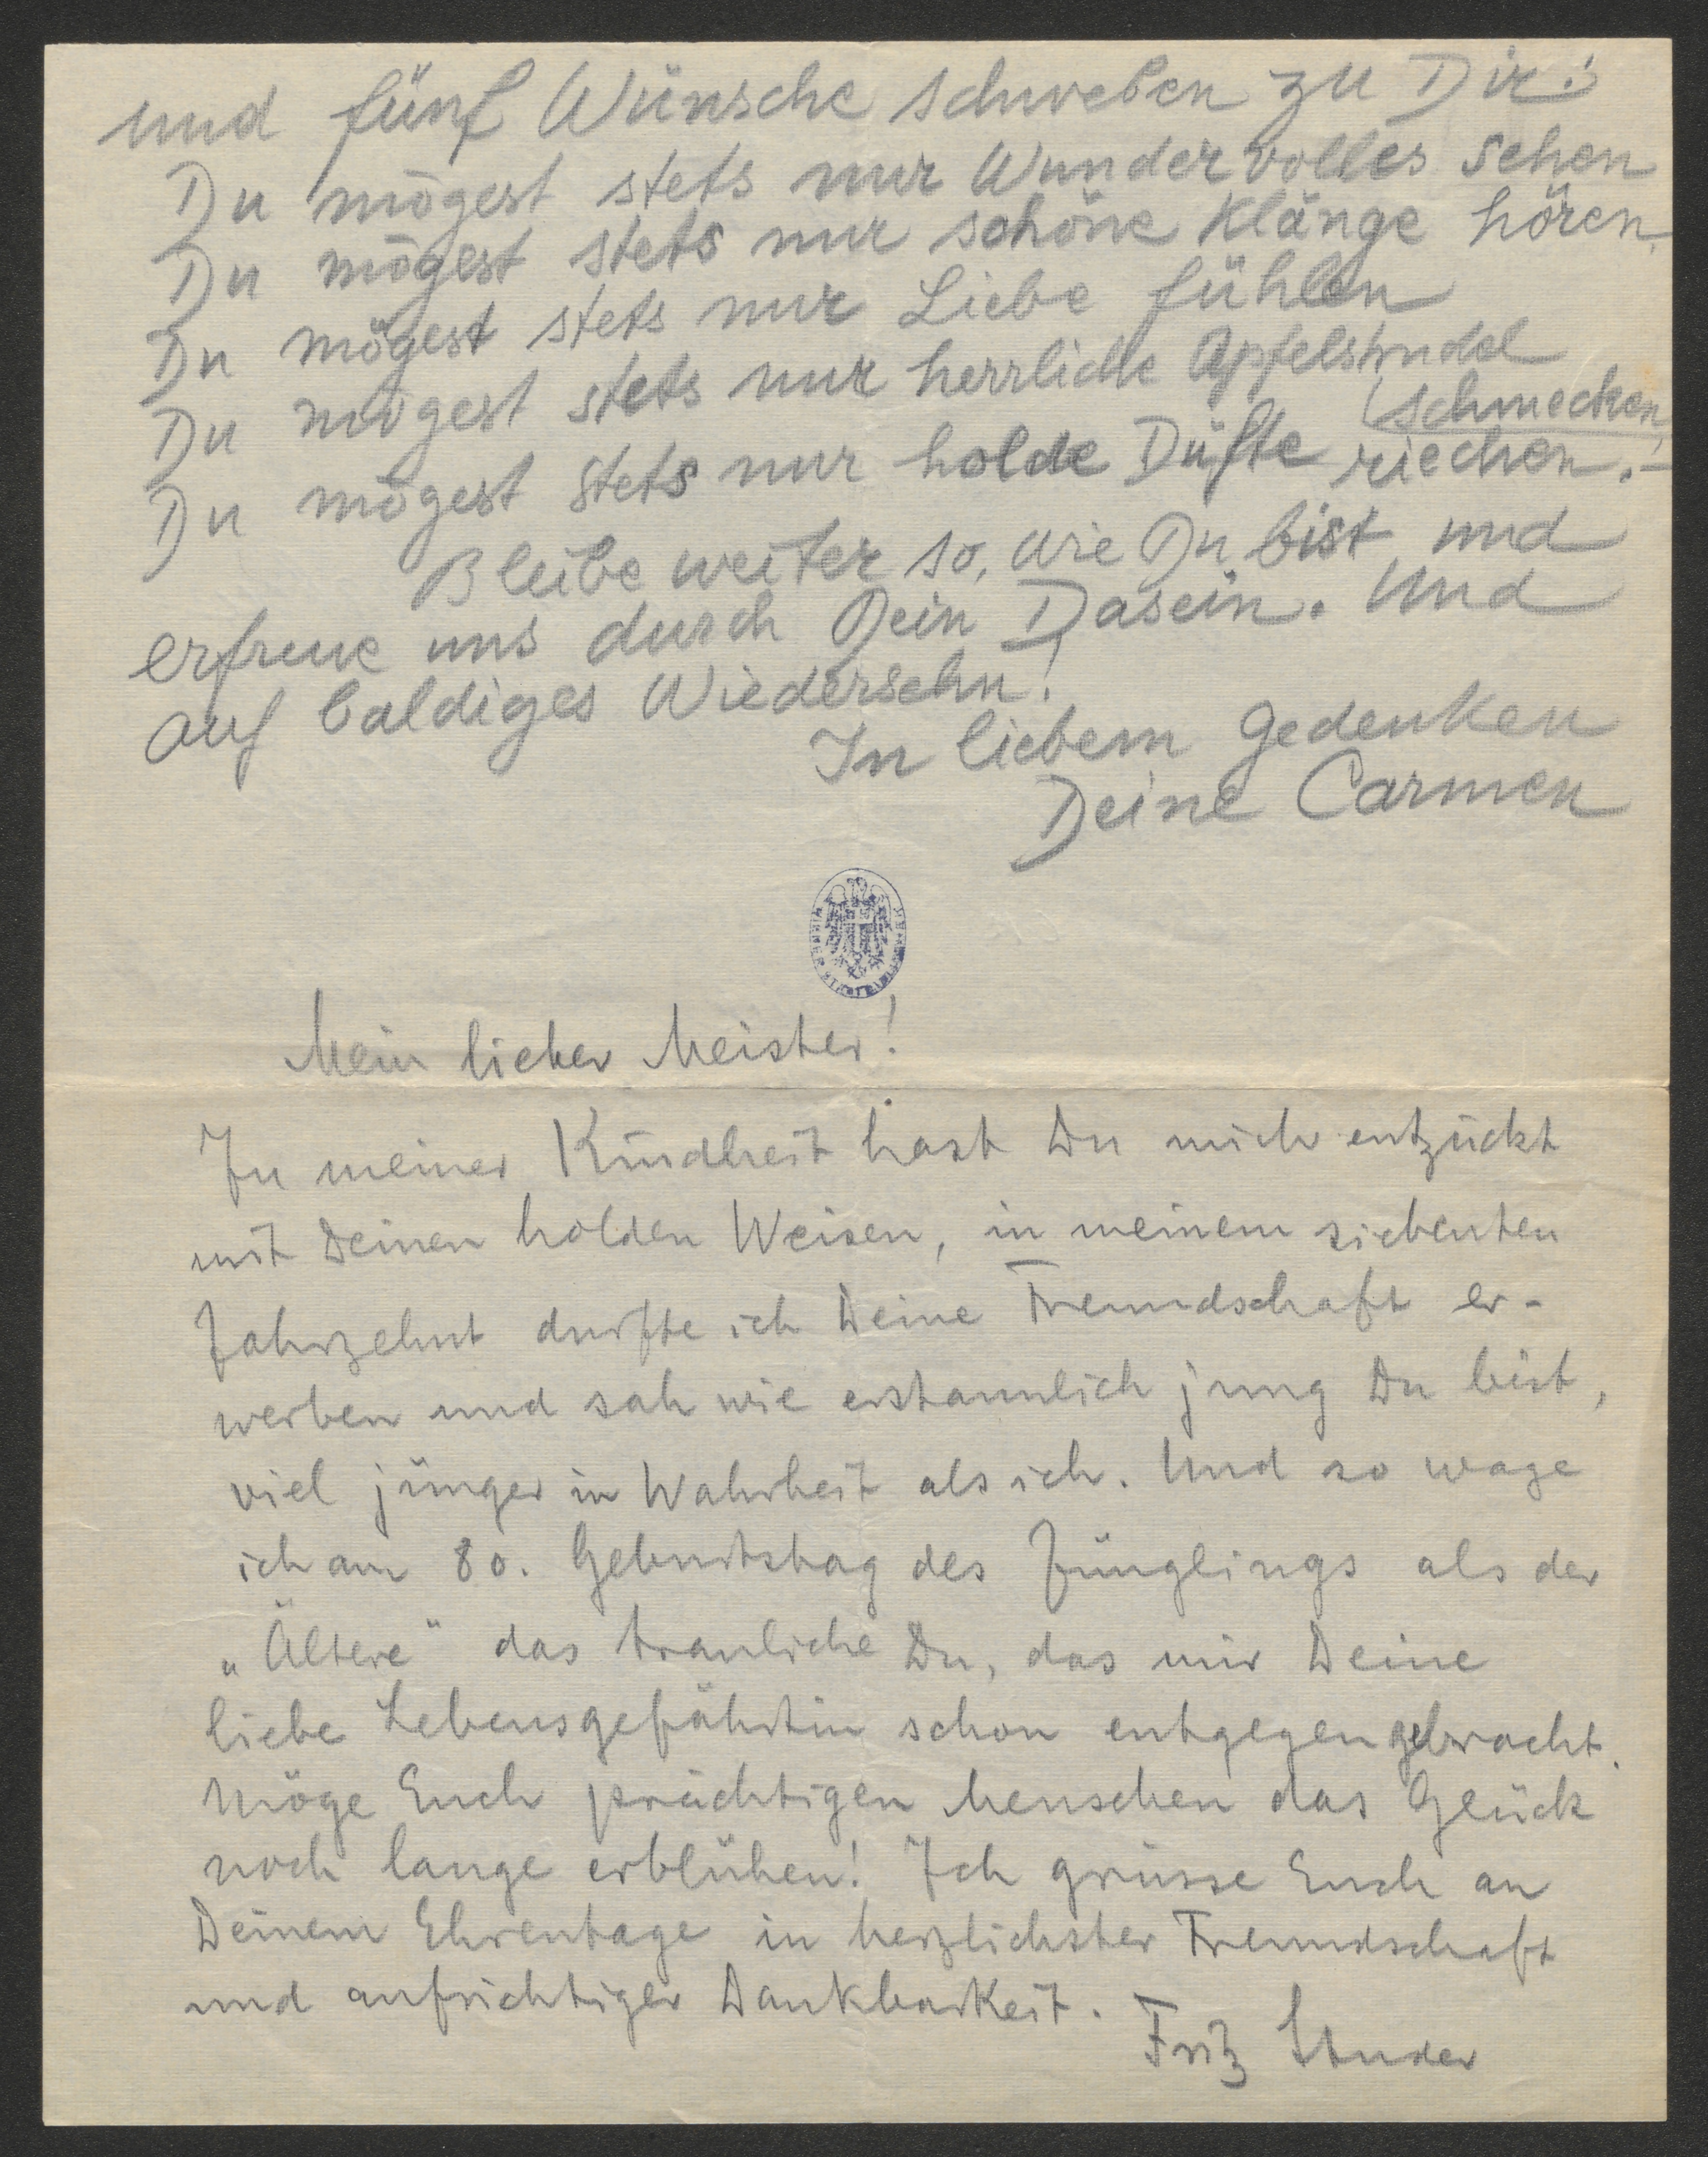 und fünf Wünsche schweben zu Dir:
Du mögest stets nur Wundervolles sehen
Du mögest stets nur schöne Klänge hören
Du mögest stets nur Liebe fühlen
Du mögest stets nur herrliche Apfelstrudel
schmecken,
Du mögest stets nur holde Düfte riechen.–
Bleibe weiter so, wie Du bist und
erfreue uns durch Dein Dasein. Und
auf baldiges Wiedersehn!
In liebem Gedenken
Deine Carmen
Mein lieber Meister!
In meiner Kindheit hast Du mich entzückt
mit Deinen holden Weisen, in meinem siebenten
Jahrzehnt durfte ich Deine Freundschaft er-
werben und sah wie erstaunlich jung Du bist,
viel jünger in Wahrheit als ich. Und so wage
ich am 80. Geburtstag des Jünglings als der
„Ältere" das trauliche Du, das mir Deine
liebe Lebensgefährtin schon entgegengebracht.
Möge Euch prächtigen Menschen das Glück
noch lange erblühen! Ich grüsse Euch an
Deinem Ehrentage in herzlichster Freundschaft
und aufrichtiger Dankbarkeit.
Fritz Studer